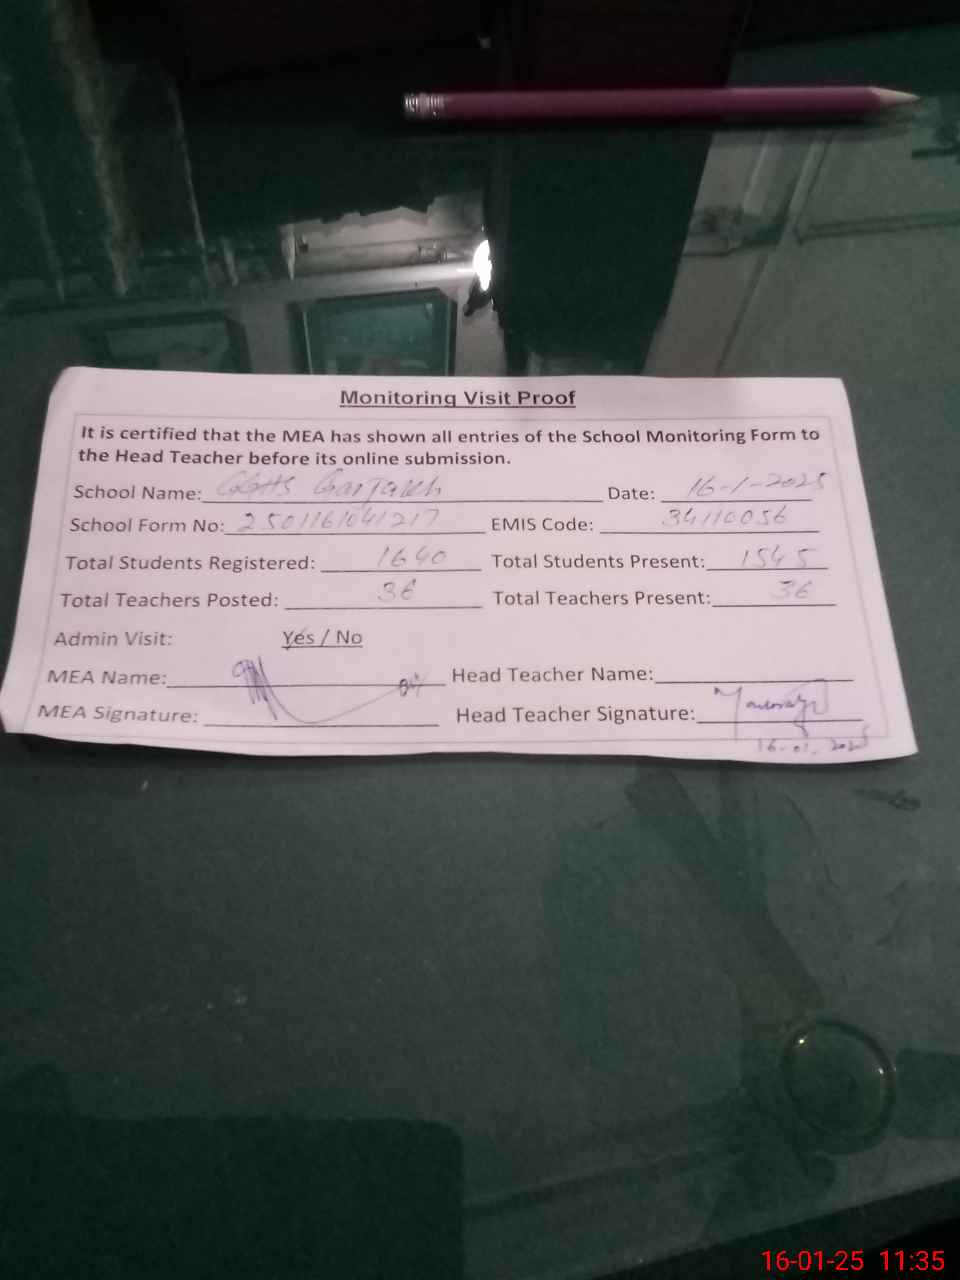 Monitoring Visit Proof
It is certified that the MEA has shown all entries of the School Monitoring Form to
the Head Teacher before its online submission.
School Name: GGHS Date: 16-1-2025
School Form No: 2501161041217 EMIS Code: 34110056
Total Students Registered: 1640 Total Students Present: 1545
Total Teachers Posted: 36 Total Teachers Present: 36
Admin Visit: Yes / No
MEA Name: 04 Head Teacher Name:
MEA Signature: Head Teacher Signature:
16-01-2025
16-01-25 11:35